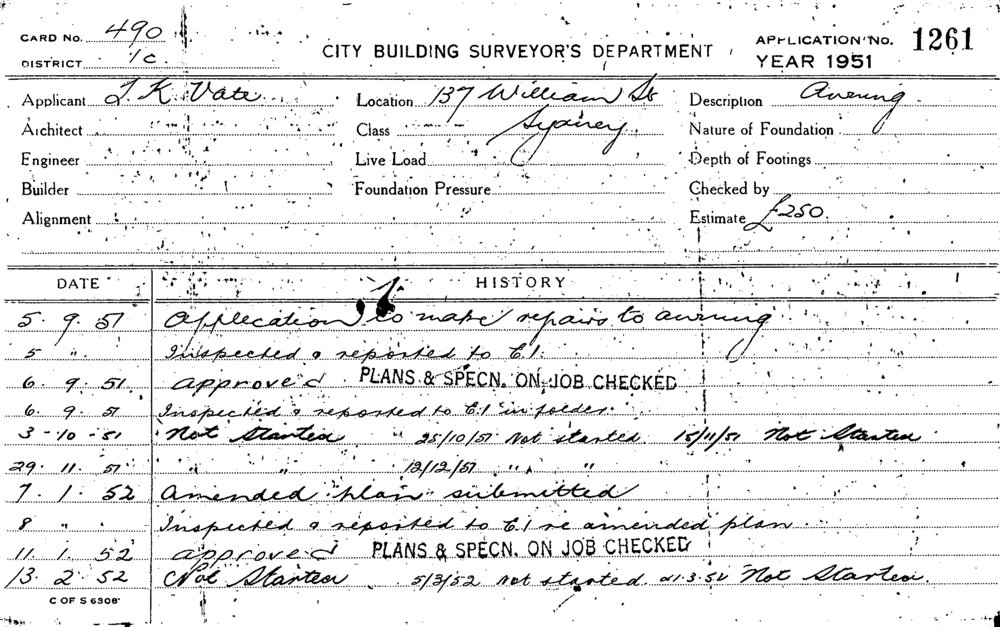 CARD No. 490
DISTRICT 1/c.
CITY BUILDING SURVEYOR'S DEPARTMENT
APPLICATION No. 1261
YEAR 1951
Applicant J. K. Vate
Location 137 William St
Sydney
Description Awning
Architect
Class
Nature of Foundation
Engineer
Live Load
Depth of Footings
Builder
Foundation Pressure
Checked by
Alignment
Estimate £250.
DATE HISTORY
5. 9. 51 Application to make repairs to awning
5 " Inspected & reported to C.I.
6. 9. 51 approved PLANS & SPECN. ON JOB CHECKED
6. 9. 51 Inspected & reported to C.I in folder
3-10-51 Not Started " 25/10/51 Not started. 15/11/51 Not Started
29. 11. 51 " " 12/12/51 " "
7. 1. 52 Amended plan submitted
8 " Inspected & reported to C.I re amended plan
11. 1. 52 approved PLANS & SPECN. ON JOB CHECKED
13. 2. 52 Not Started 5/3/52 Not started. 21.3.52 Not Started.
C OF S 6308